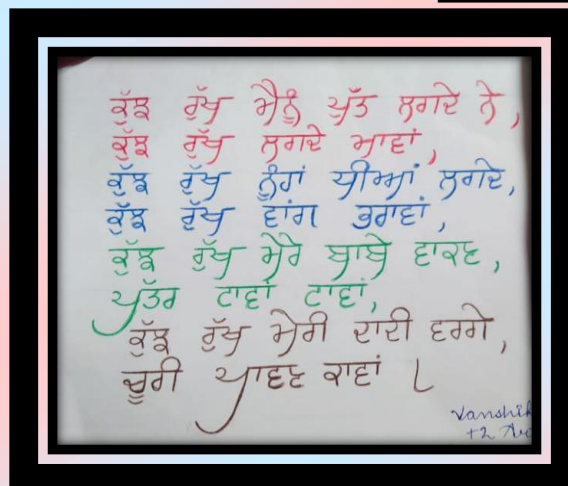 ਕੁੱਝ ਰੁੱਖ ਮੈਨੂੰ ਪੁੱਤ ਲਗਦੇ ਨੇ,
ਕੁੱਝ ਰੁੱਖ ਲਗਦੇ ਮਾਵਾਂ,
ਕੁੱਝ ਰੁੱਖ ਨੂੰਹਾਂ ਧੀਆਂ ਲਗਦੇ,
ਕੁੱਝ ਰੁੱਖ ਵਾਂਗ ਭਰਾਵਾਂ,
ਕੁੱਝ ਰੁੱਖ ਮੇਰੇ ਬਾਬੇ ਵਾਕਣ,
ਪੱਤਰ ਟਾਵਾਂ ਟਾਵਾਂ,
ਕੁੱਝ ਰੁੱਖ ਮੇਰੀ ਦਾਦੀ ਵਰਗੇ,
ਚੂਰੀ ਪਾਵਣ ਕਾਵਾਂ ।
+2